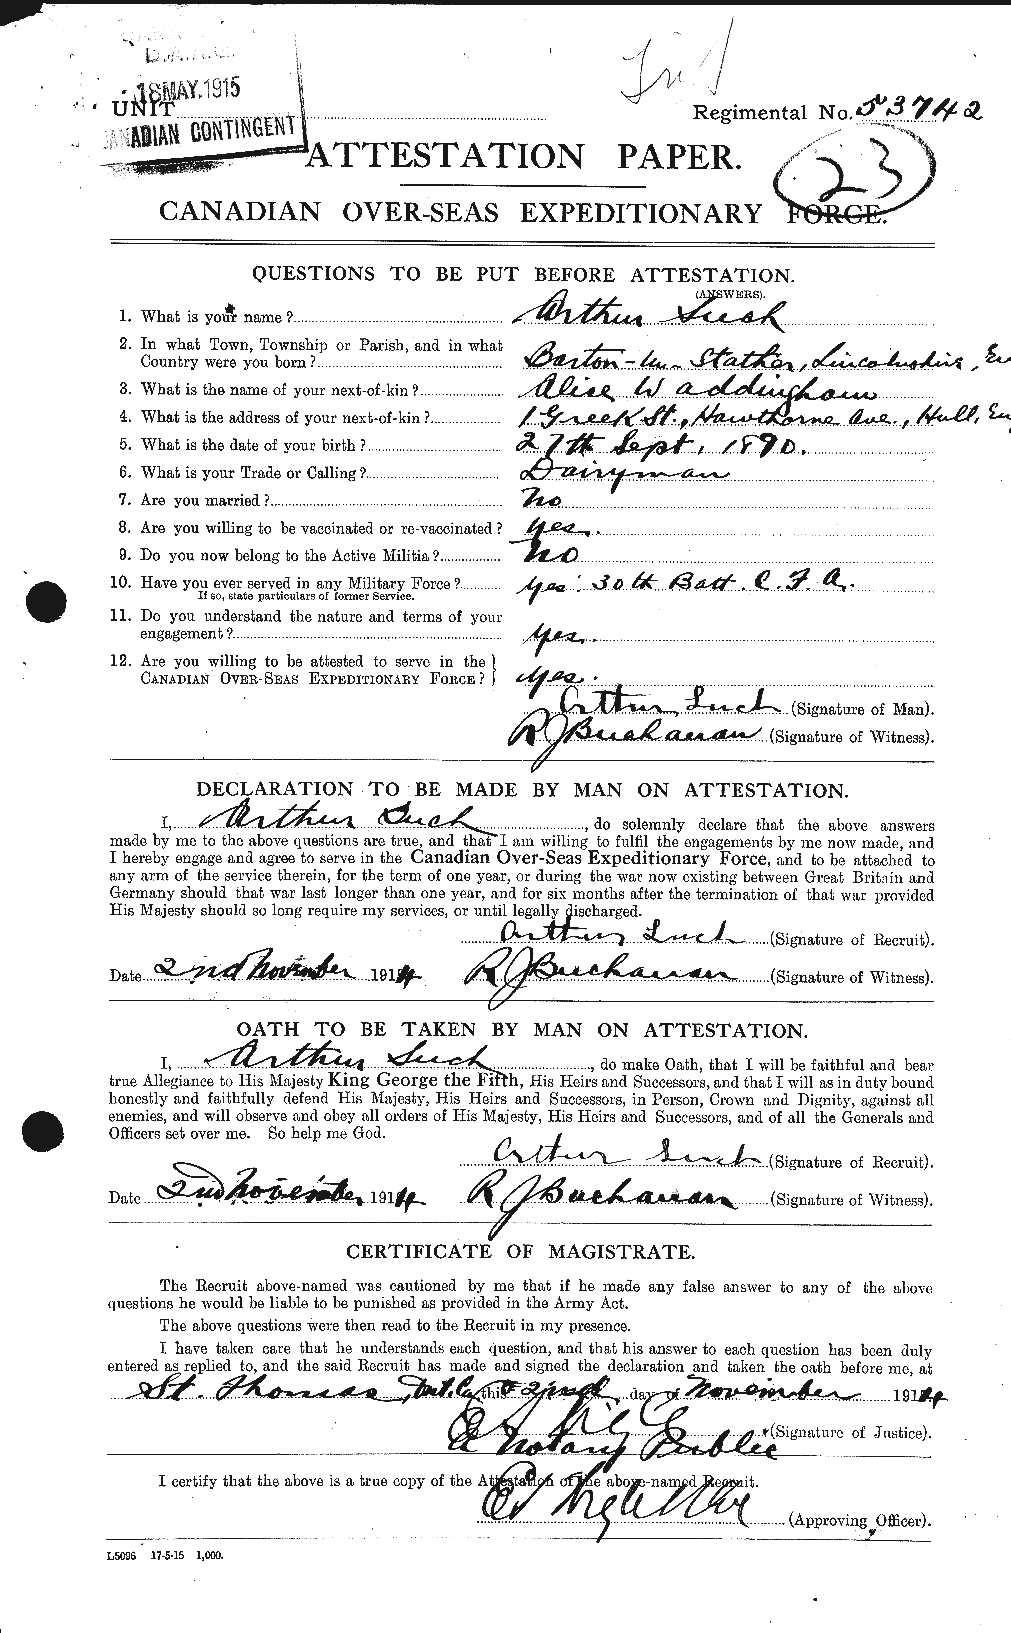 D.A.A.G.
18 MAY.1915
UNIT
CANADIAN CONTINGENT
Regimental No. 53742
ATTESTATION PAPER.
23
CANADIAN OVER-SEAS EXPEDITIONARY FORCE.
QUESTIONS TO BE PUT BEFORE ATTESTATION.
(ANSWERS).
1. What is your name? Arthur Such
2. In what Town, Township or Parish, and in what
Country were you born? Barton-um-Stather, Lincolnshire, En
3. What is the name of your next-of-kin? Alise Waddingham
4. What is the address of your next-of-kin? 1 Greek St., Hawthorne Ave., Hull, En
5. What is the date of your birth? 27th Sept, 1890.
6. What is your Trade or Calling? Dairyman
7. Are you married? No
8. Are you willing to be vaccinated or re-vaccinated? Yes.
9. Do you now belong to the Active Militia? No
10. Have you ever served in any Military Force? Yes. 30th Batt. C.F.A.
If so, state particulars of former Service.
11. Do you understand the nature and terms of your
engagement? Yes.
12. Are you willing to be attested to serve in the
CANADIAN OVER-SEAS EXPEDITIONARY FORCE? Yes.
Arthur Such (Signature of Man).
R J Buchanan (Signature of Witness).
DECLARATION TO BE MADE BY MAN ON ATTESTATION.
I, Arthur Such, do solemnly declare that the above answers
made by me to the above questions are true, and that I am willing to fulfil the engagements by me now made, and
I hereby engage and agree to serve in the Canadian Over-Seas Expeditionary Force, and to be attached to
any arm of the service therein, for the term of one year, or during the war now existing between Great Britain and
Germany should that war last longer than one year, and for six months after the termination of that war provided
His Majesty should so long require my services, or until legally discharged.
Arthur Such (Signature of Recruit).
Date 2nd November 1914 R J Buchanan (Signature of Witness).
OATH TO BE TAKEN BY MAN ON ATTESTATION.
I, Arthur Such, do make Oath, that I will be faithful and bear
true Allegiance to His Majesty King George the Fifth, His Heirs and Successors, and that I will as in duty bound
honestly and faithfully defend His Majesty, His Heirs and Successors, in Person, Crown and Dignity, against all
enemies, and will observe and obey all orders of His Majesty, His Heirs and Successors, and of all the Generals and
Officers set over me. So help me God.
Arthur Such (Signature of Recruit).
Date 2nd November 1914 R J Buchanan (Signature of Witness).
CERTIFICATE OF MAGISTRATE.
The Recruit above-named was cautioned by me that if he made any false answer to any of the above
questions he would be liable to be punished as provided in the Army Act.
The above questions were then read to the Recruit in my presence.
I have taken care that he understands each question, and that his answer to each question has been duly
entered as replied to, and the said Recruit has made and signed the declaration and taken the oath before me, at
St. Thomas, Ont. this 2nd day of November 1914
(Signature of Justice).
A Notary Public
I certify that the above is a true copy of the Attestation of the above-named Recruit.
(Approving Officer).
L5096 17-5-15 1,000.